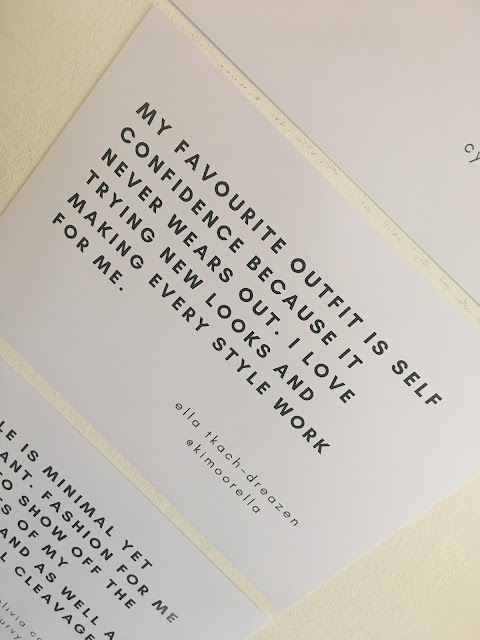 MY FAVOURITE OUTFIT IS SELF
CONFIDENCE BECAUSE IT
NEVER WEARS OUT. I LOVE
TRYING NEW LOOKS AND
MAKING EVERY STYLE WORK
FOR ME.
ella tkach-dreazen
@kimoorella
IS MINIMAL YET
FASHION FOR ME
TO SHOW OFF THE
OF MY
AND AS WELL A
CLEAVAGE
cy